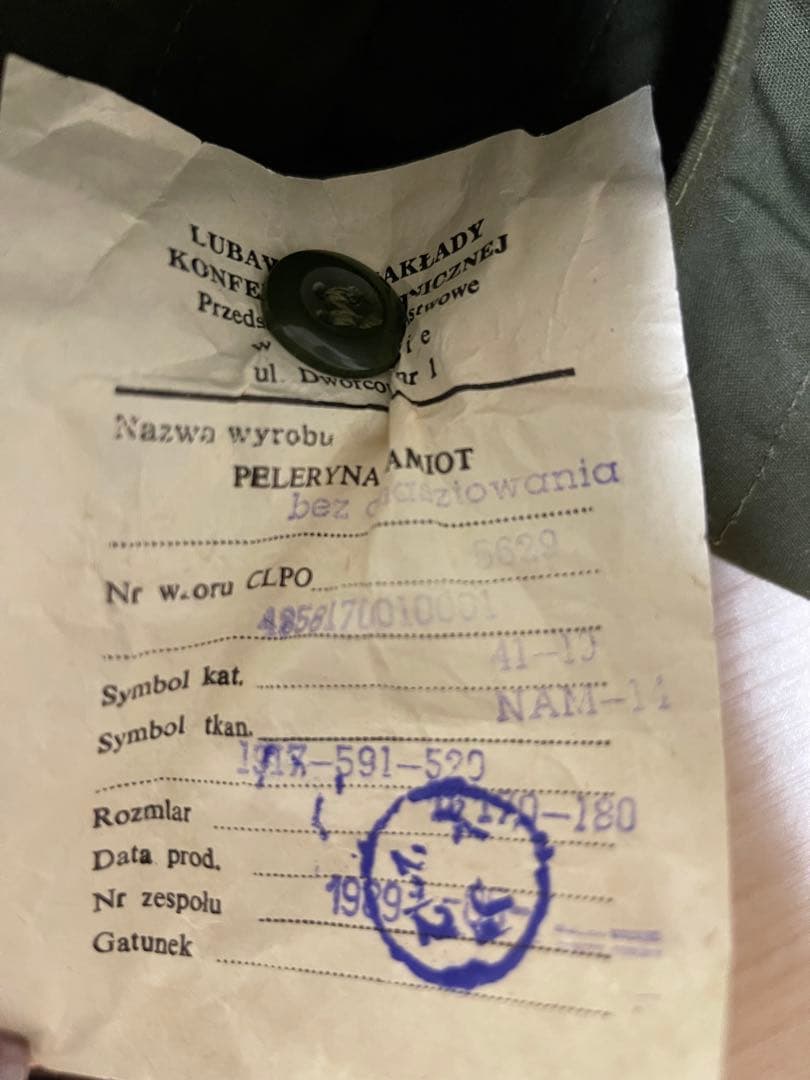 LUBAW AKŁADY
KONFE NICZNEJ
Przeds stwowe
w ie
ul. Dworco nr 1
Nazwa wyrobu
PELERYNA AMIOT
bez
Nr w.oru CLPO 6629
4858170010001
Symbol kat.
Symbol tkan. NAM-11
-591-529
Rozmiar 170-180
Data prod.
Nr zespołu 1989
Gatunek